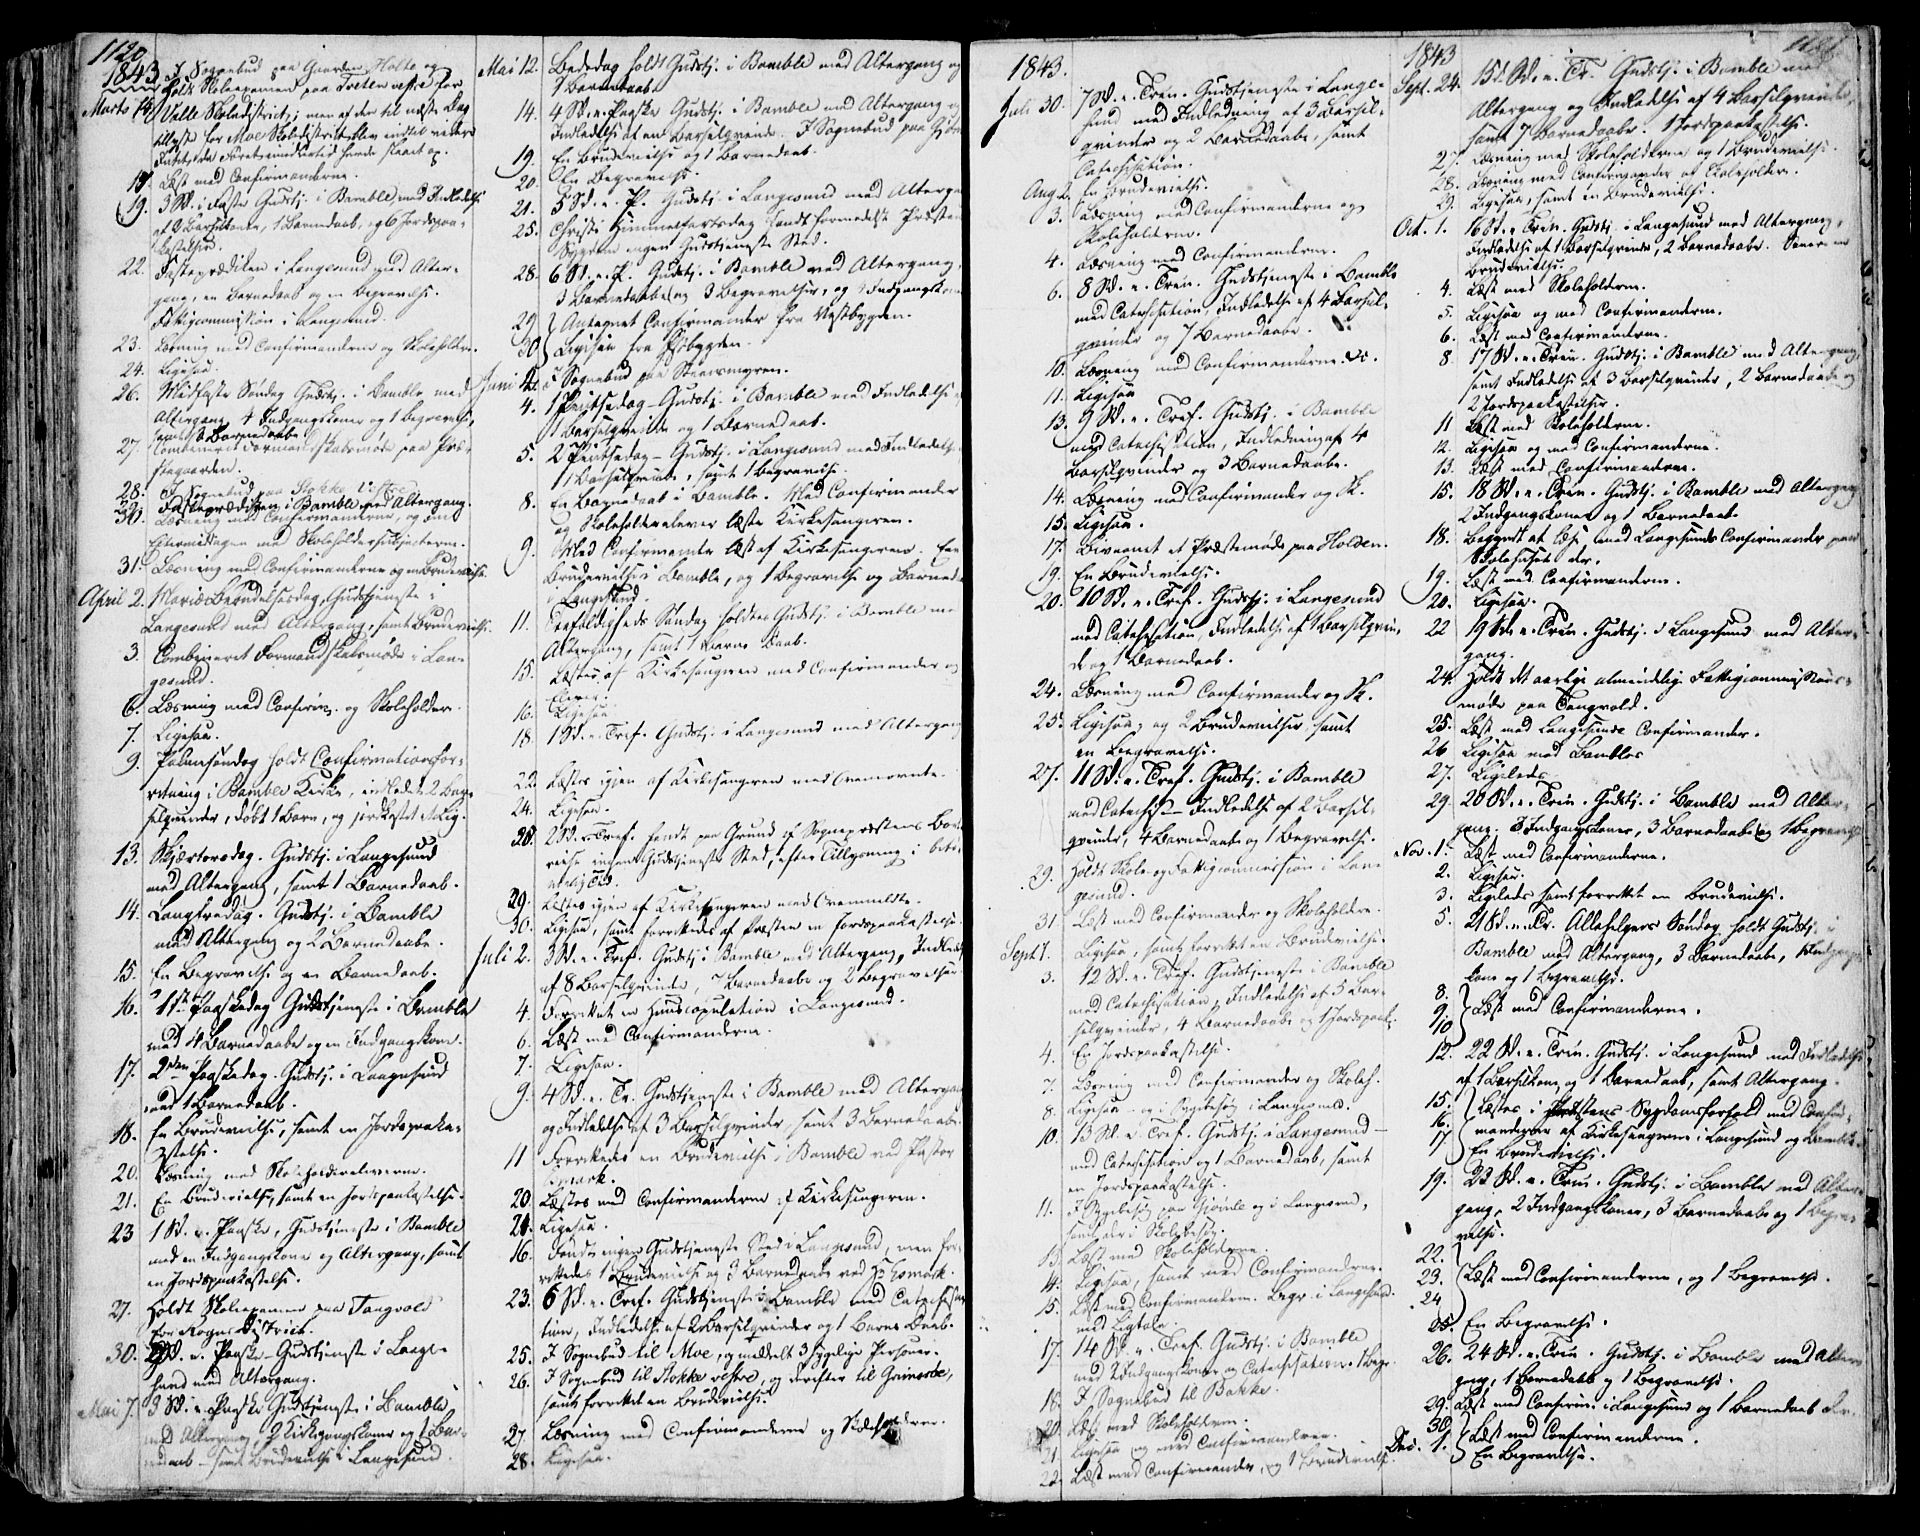 1120
1843
I Sognebud paa Gaarden Holte og
holdt Skoleexamen paa Tveten vestre for
Marts 14. Valle Skoledistrict; men af den til næste Dag
tillyste for Moe Skoledistrict blev indtil videre
15. Læst med Confirmanderne.
19. 3 S. i Faste Gudstj. i Bamble med Indledelse
af 2 Barselkoner, 1 Barnedaab, og 6 Jordspaa-
kastelser.
22. Fasteprædiken i Langesund med Alter-
gang, en Barnedaab og en Begravelse.
Fattigcommission i Langesund.
23. Læsning med Confirmanderne og Skoleholdere.
24. Ligesaa.
26. Midfaste Søndag Gudstj. i Bamble med
Altergang, 4 Indgangskoner og 1 Begravelse,
samt 2 Barnedaabe
27. Combineret Formandskabsmøde paa Præ-
stegaarden.
28. I Sognebud paa Stokke vestre
29. Fasteprædiken i Bamble med Altergang.
30. Læsning med Confirmanderne, og om
Eftermiddagen med Skoleholdersubjecterne.
31. Læsning med Confirmanderne og en Brudevielse.
April 2. Mariæ Bebudelsesdag, Gudstjeneste i
Langesund med Altergang, samt Brudevielse.
3. Combineret Formandskabsmøde i Lan-
gesund.
6. Læsning med Confirm. og Skoleholder.
7. Ligesaa.
9. Palmesøndag holdt Confirmationsfor-
retning i Bamble Kirke, indledet 2 Bar-
selqvinder, døbt 1 Barn, og jordkastet et Lig.
13. Skjærtorsdag. Gudstj. i Langesund
med Altergang, samt 1 Barnedaab.
14. Langfredag. Gudstj. i Bamble
med Altergang og 2 Barnedaabe.
15. En Begravelse og en Barnedaab.
16. 1ste Paaskedag Gudstjeneste i Bamble
med 4 Barnedaabe og en Indgangskone.
17. 2den Paaskedag. Gudstj. i Langesund
med 1 Barnedaab.
18. En Brudevielse, samt en Jordspaaka-
stelse.
20. Læsning med Skoleholdereleverne.
21. En Brudevielse, samt en Jordspaakastelse.
23 1 S. e. Paaske, Gudstjeneste i Bamble
med en Indgangskone og Altergang, samt
en Jordspaakastelse.
27. Holdt Skoleexamen paa Tangvald
for Rogns District.
30. 2 S. e. Paaske Gudstjeneste i Lange-
sund med Altergang.
Mai 7. 3 S. e. Paaske Gudstjeneste i Bamble
med Altergang, 2 Kirkegangskoner og 1 Bar-
nedaab samt Brudevielse i Langesund.
Mai 12. Bededag holdt Gudstj. i Bamble med Altergang og
Barnedaab
14. 4 S. e. Paaske Gudstj. i Bamble med Altergang og
Indledelse af en Barselqvinde. I Sognebud paa
19. En Brudevielse og 1 Barnedaab.
20. En Begravelse.
21. 5 S. e. P. Gudstj. i Langesund med Altergang
25. Christi Himmelfartsdag fandt formedelst Præstens
Sygdom ingen Gudstjeneste Sted.
28. 6 S. e. P. Gudstj. i Bamble med Altergang,
3 Barnedaabe og 3 Begravelser, og Indgangskone
29 Antegnet Confirmander fra Vestbygden.
30 Ligesaa fra Øsbygden.
Juni 2. I Sognebud paa Steensmyren.
4. 1 Pintsedag - Gudstj. i Bamble med Indledelse
1 Barselqvinde og 1 Barnedaab.
5. 2 Pintsedag - Gudstj. i Langesund med Indledelse
1 Barselqvinde, samt 1 Begravelse.
8. En Barnedaab i Bamble. Med Confirmander
og Skoleholderelever læste Kirkesangeren.
9. Med Confirmander læst af Kirkesangeren. En
Brudevielse i Bamble, og 1 Begravelse og Barnedaab
i Langesund.
11. Trefoldigheds Søndag holdtes Gudstj. i Bamble med
Altergang, samt 1 Barne Daab.
15. Læstes af Kirkesangeren med Confirmander og
Elever.
16. Ligesaa
18. 1 S. e. Tref. Gudstj. i Langesund med Altergang
22. Læstes igjen af Kirkesangeren med Ovennævnte.
24. Ligesaa.
25. 2 S. e. Tref. fandt paa Grund af Sognepræstens Bort-
reise ingen Gudstjeneste Sted, efter Tillysning i beti-
melig Tid.
29. Læstes igjen af Kirkesangeren med Ovenmeldte.
30. Ligesaa, samt forrettedes af Præsten en Jordspaakastelse
Juli 2. 3 S. e. Tref. Gudstj. i Bamble med Altergang, Indledelse
af 8 Barselqvinder, 7 Barnedaabe og 2 Begravelser
4. Forrettet en Huuscopulation i Langesund.
6. Læst med Confirmanderne.
7. Ligesaa.
9. 4 S. e. Tr. Gudstjeneste i Bamble med Altergang
og Indledelse af 3 Barselqvinder, samt 3 Barnedaabe.
11 Forrettedes en Brudevielse i Bamble ved Pastor
Esmark.
20. Læstes med Confirmanderne af Kirkesangeren.
21. Ligesaa.
16. Fandt ingen Gudstjeneste Sted i Langesund, men for-
rettedes 1 Brudevielse og 3 Barnedaabe ved Hr Esmark.
23. 6 S. e. Tref. Gudstjeneste i Bamble med Catechisa-
tion, Indledelse af 2 Barselqvinder og 1 Barne Daab.
25. I Sognebud til Moe, og meddelt 3 sygelige Personer.
26. I Sognebud til Stokke vestre, og derefter til
samt forrettet en Brudevielse.
27. Læsning med Confirmanderne og Skoleholderne.
28. Ligesaa.
1843.
Juli 30. 7 S. e. Trin. Gudstjeneste i Lange-
sund med Indledning af 3 Barsel-
qvinder og 2 Barnedaabe, samt
Catechisation.
Aug 2. En Brudevielse.
3. Læsning med Confirmanderne og
Skoleholderne.
4. Læsning med Confirmanderne.
6. 8 S. e. Trin. Gudstjeneste i Bamble
med Catechisation, Indledelse af 4 Barsel-
qvinder og 7 Barnedaabe.
10. Læsning med Confirmanderne
11. Ligesaa
13. 9 S. e. Tref. Gudstj. i Bamble
med Catechisation, Indledning af 4
Barselqvinder og 3 Barnedaabe.
14. Læsning med Confirmander og Sk.
15. Ligesaa.
17. Bivaanet et Præstemøde paa Holden.
19. En Brudevielse.
20. 10 S. e. Tref. Gudstj. i Langesund
med Catechisation, Indledelse af 1 Barselqvin-
de og 1 Barnedaab.
24. Læsning med Confirmander og Sk.
25. Ligesaa, og 2 Brudevielser samt
en Begravelse.
27. 11 S. e. Tref. Gudstj. i Bamble
med Catechis - Indledelse af 2 Barsel-
qvinder, 4 Barnedaabe og 1 Begravelse.
29. Holdt Skole- og Fattigcommission i Lan-
gesund.
31 Læst med Confirmander og Skoleholdere.
Sept 1. Ligesaa, samt forrettet en Brudevielse.
3. 12 S. e. Tref. Gudstjeneste i Bamble
med Catechisation, Indledelse af 5 Bar-
selqvinder, 4 Barnedaabe og 1 Jordspaak.
4. En Jordspaakastelse.
7. Læsning med Confirmander og Skoleh.
8. Ligesaa - og i Sygebesøg i Langesund.
10. 13 S. e. Tref. Gudstj. i Langesund -
med Catechisation og 1 Barnedaab, samt
en Jordspaakastelse.
11. I Sygebesøg paa og i Langesund,
samt der i Skolebesøg.
13. Læst med Skoleholderne.
14. Ligesaa, samt med Confirmanderne.
15. Læst med Confirmandern. Begr. i Langesund
med Ligtale.
17. 14 S. e. Tref. Gudstj. i Bamble
med 2 Indgangskoner og Catechisation. 1 Begr.
18. I Sognebud til Bakke.
20. Læst med Skoleholderne.
21 Ligesaa og med Confirmanderne.
22. Læst med Confirmander, og 1 Brudevielse.
1121
1843
Sept. 24. 15 S. e. Tr. Gudstj. i Bamble med
Altergang og Indledelse af 4 Barselqvinder,
samt 7 Barnedaabe. 1 Jordspaakastelse.
27. Læsning med Skoleholderne og 1 Brudevielse.
28. Læsning med Confirmander og Skoleholder.
29. Ligesaa, samt en Brudevielse.
Oct. 1. 16 S. e. Trin. Gudstj. i Langesund med Altergang,
Indledelse af 1 Barselqvinde, 2 Barnedaabe. Senere en
Brudevielse.
4. Læst med Skoleholderne.
5. Ligesaa og med Confirmanderne.
6. Læst med Confirmanderne.
8 17 S. e. Trin. Gudstj. i Bamble med Altergang,
samt Indledelse af 3 Barselqvinder, 2 Barnedaabe og
2 Jordspaakastelser.
11 Læst med Skoleholderne.
12. Ligesaa og med Confirmanderne.
13. Læst med Confirmanderne.
15. 18 S. e. Trin. Gudstj. i Bamble med Altergang
2 Indgangskoner og 1 Barnedaab
18. Begyndt at læse med Langesunds Confirmander paa
Skolehuset der.
19. Læst med Confirmanderne.
20. Ligesaa.
22 19 S. e. Trin. Gudstj. i Langesund med Alter-
gang.
24. Holdt det aarlige almindelige Fattigcommissions-
møde paa Tangvald.
25. Læst med Langesunds Confirmander.
26 Ligesaa med Bambles
27. Ligeledes
29. 20 S. e. Trin. Gudstj. i Bamble med Alter-
gang, 3 Indgangskoner, 3 Barnedaabe og 1 Begravelse
Nov. 1. Læst med Confirmanderne.
2. Ligesaa.
3. Ligeledes samt forrettet en Brudevielse.
5. 21 S. e. Tr. Allehelgens Søndag holdt Gudstj. i
Bamble med Altergang, 3 Barnedaabe, 1 Indgangs-
kone og 1 Begravelse.
8.
9. Læst med Confirmanderne.
10
12. 22 S. e. Trin. Gudstj. i Langesund med Indledelse
af 1 Barselkone og 1 Barnedaab, samt Altergang.
15. Læstes i Præstens Sygdomsforfald med Confir-
16. manderne af Kirkesangerne i Langesund og Bamble.
17 En Brudevielse.
19. 23 S. e. Trin. Gudstj. i Bamble med Alter-
gang, 2 Indgangskoner, 3 Barnedaabe og 1 Begra-
velse.
22.
23. Læst med Confirmanderne, og 1 Begravelse.
24
25. En Begravelse.
26. 24 S. e. Trin. Gudstj. i Bamble med Alter-
gang, 1 Barnedaab og 1 Begravelse.
29. Læst med Confirm. i Langesund og 1 Barnedaab
30 Læst med Confirmanderne.
Dec. 1. En Begravelse.